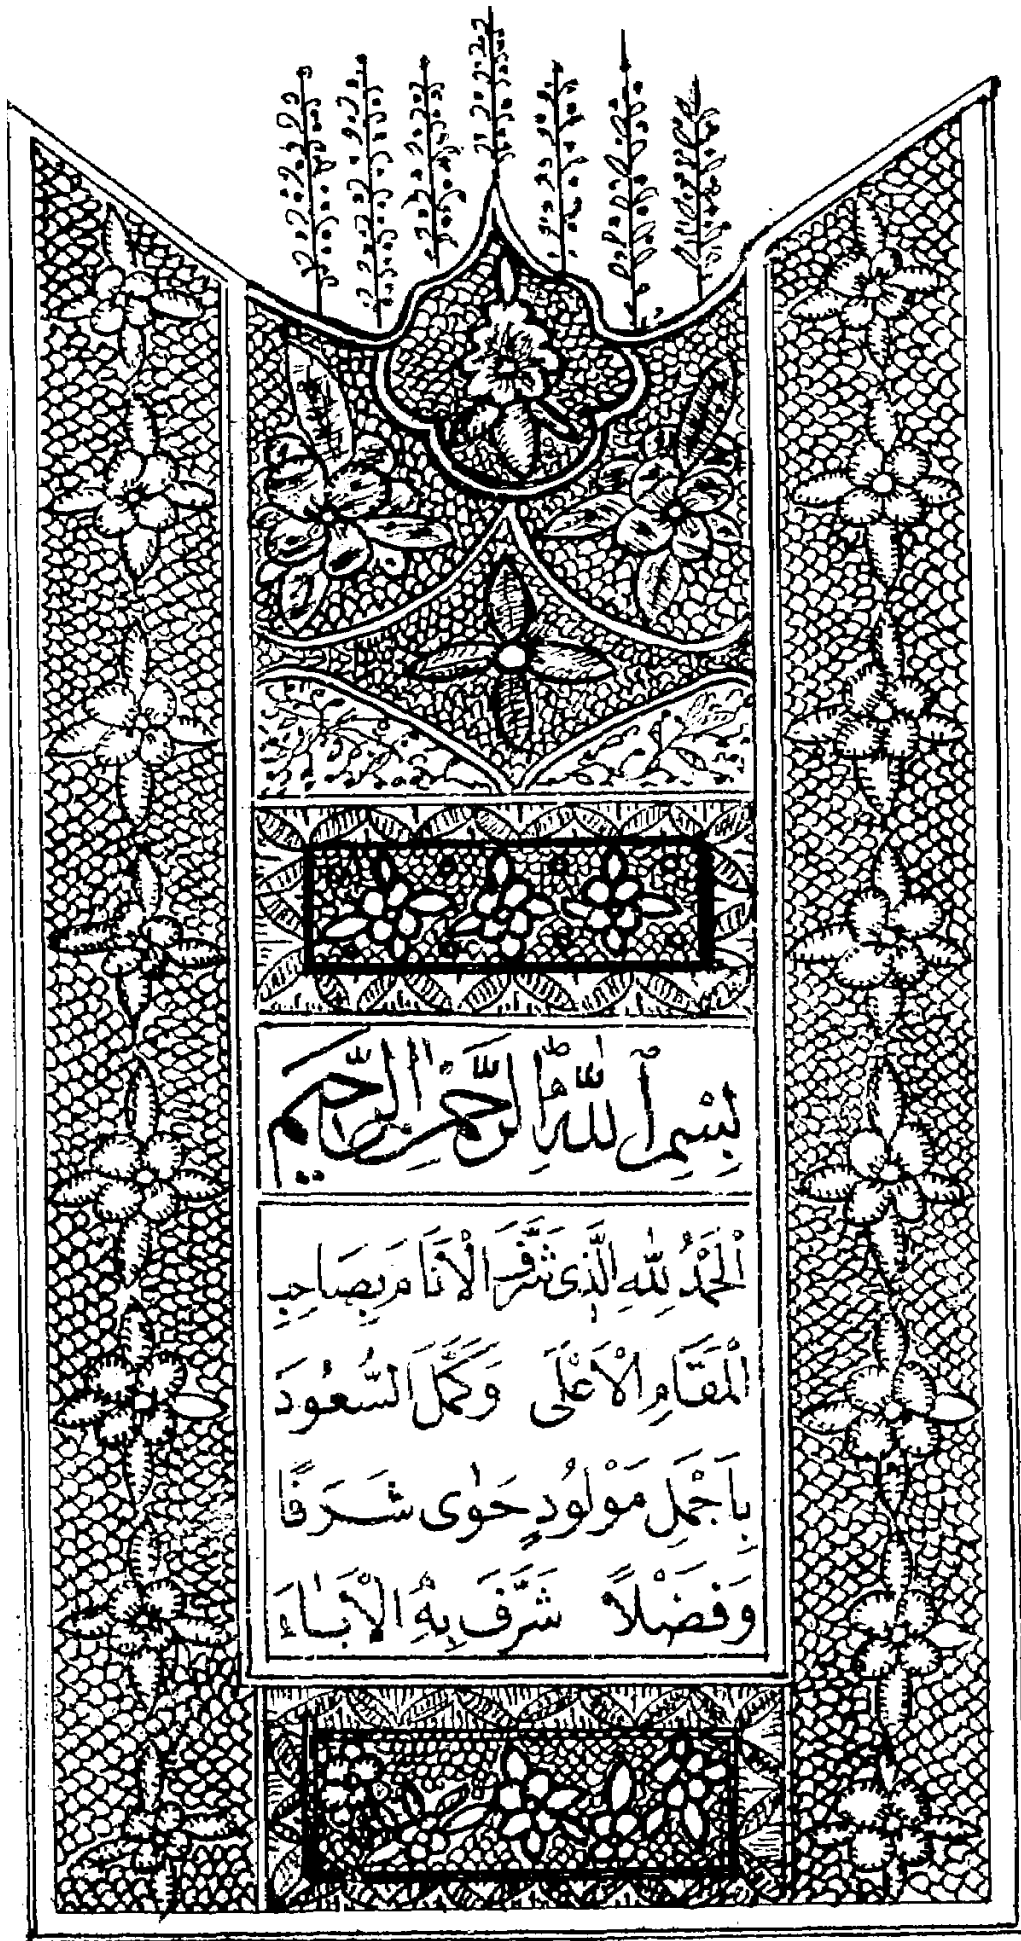 بِسْمِ ٱللَّهِ الرَّحْمٰنِ الرَّحِيمِ
اَلْحَمْدُ لِلّٰهِ الَّذِى شَرَّفَ الْاَنَامَ بِصَاحِبِ
الْمَقَامِ الْاَعْلَى وَكَمَّلَ السُّعُودَ
بِاَجْمَلِ مَوْلُودٍ حَوٰى شَرَفًا
وَفَضْلًا شَرَّفَ بِهِ الْاٰبَاءَ